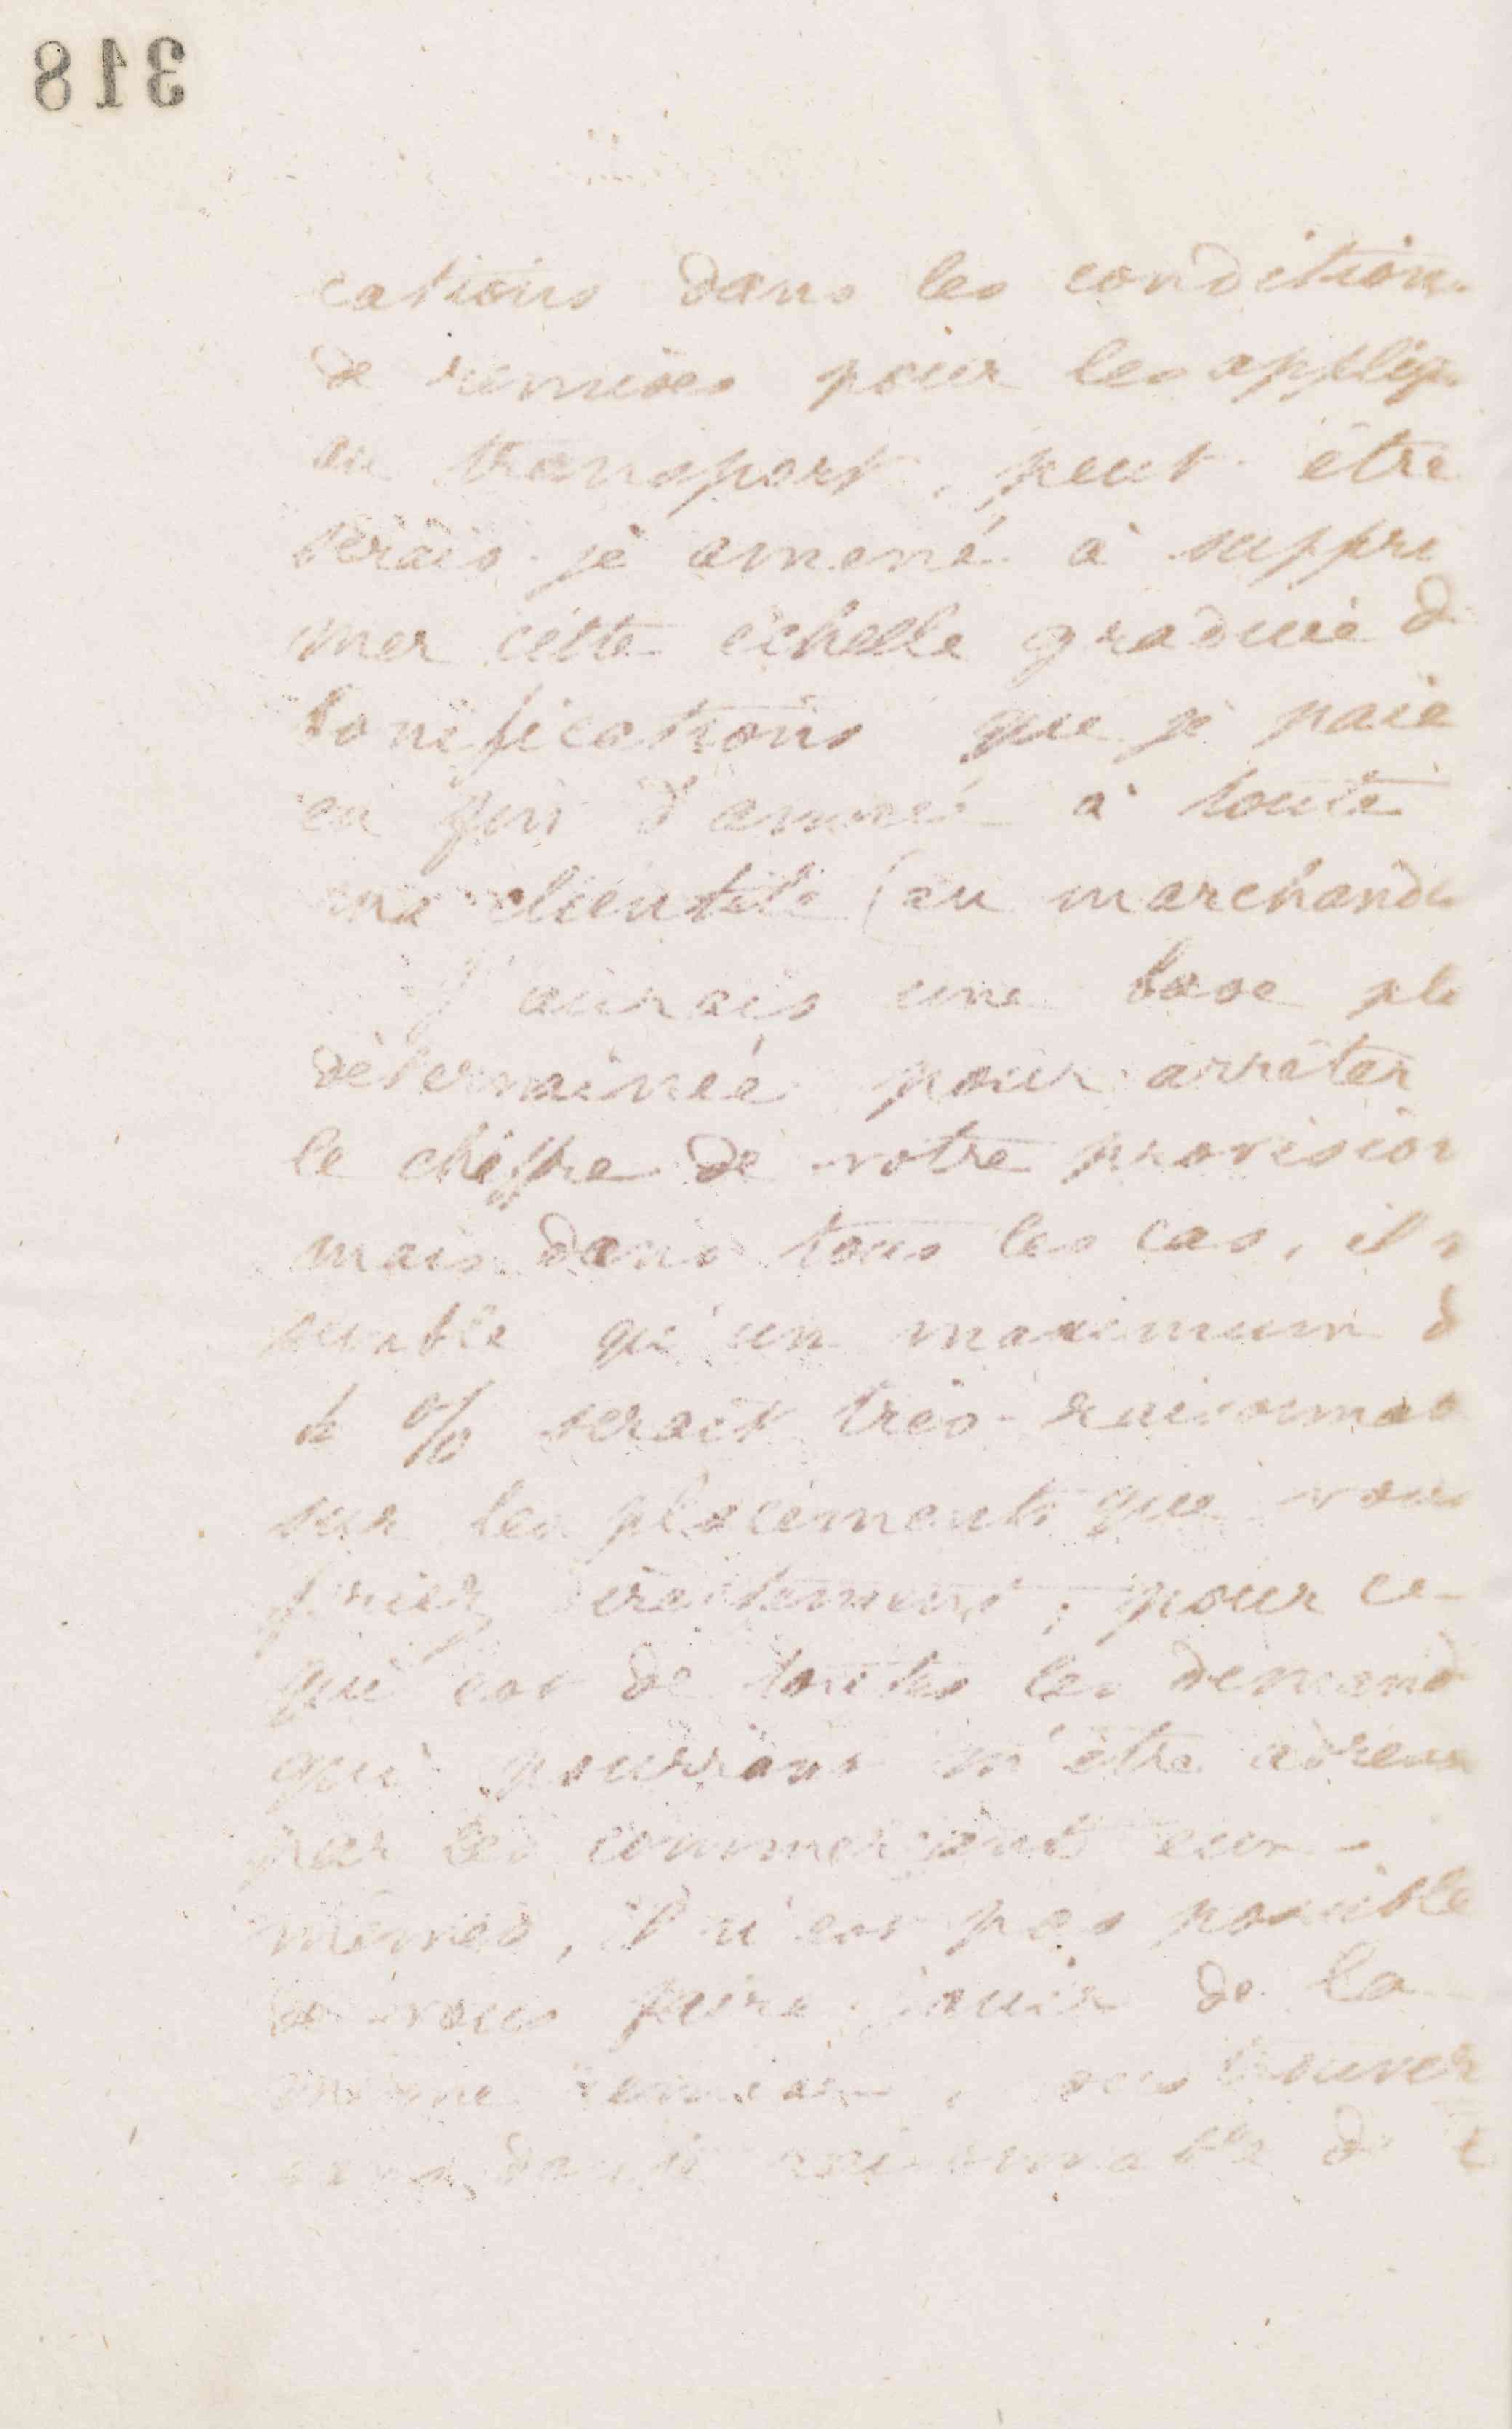 318
cations dans les condition
de remises pour les appliqu
au transport, peut être
serais-je amené à suppri
mer cette échelle graduée d
bonifications que je paie
en fin d'année à toute
ma clientèle (en marchandi
J'aurais une base pl
déterminée pour arrêter
le chiffre de votre provision
mais dans tous les cas, il
semble qu'un maximum d
% serait très raisonnab
sur les placements que vous
feriez directement ; pour ce
qui est de toutes les demand
qui pourront m'être adress
par les commerçants eux-
mêmes, il n'est pas possible
de vous faire jouir de la
même remise, vous trouver
de